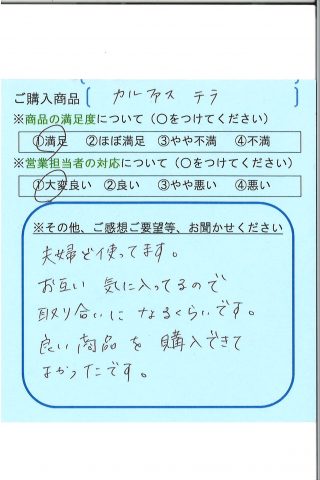 ご購入商品 カルファス テラ
※商品の満足度について(○をつけてください)
①満足 ②ほぼ満足 ③やや不満 ④不満
※営業担当者の対応について(○をつけてください)
①大変良い ②良い ③やや悪い ④悪い
※その他、ご感想ご要望等、お聞かせください
夫婦で使ってます。
お互い 気に入ってるので
取り合いに なるくらいです。
良い商品を 購入できて
よかったです。